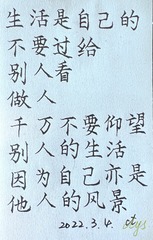 生活是自己的
不要过给
别人看
做人
千万不要仰望
别人的生活
因为自己亦是
他人的风景
2022.3.4.